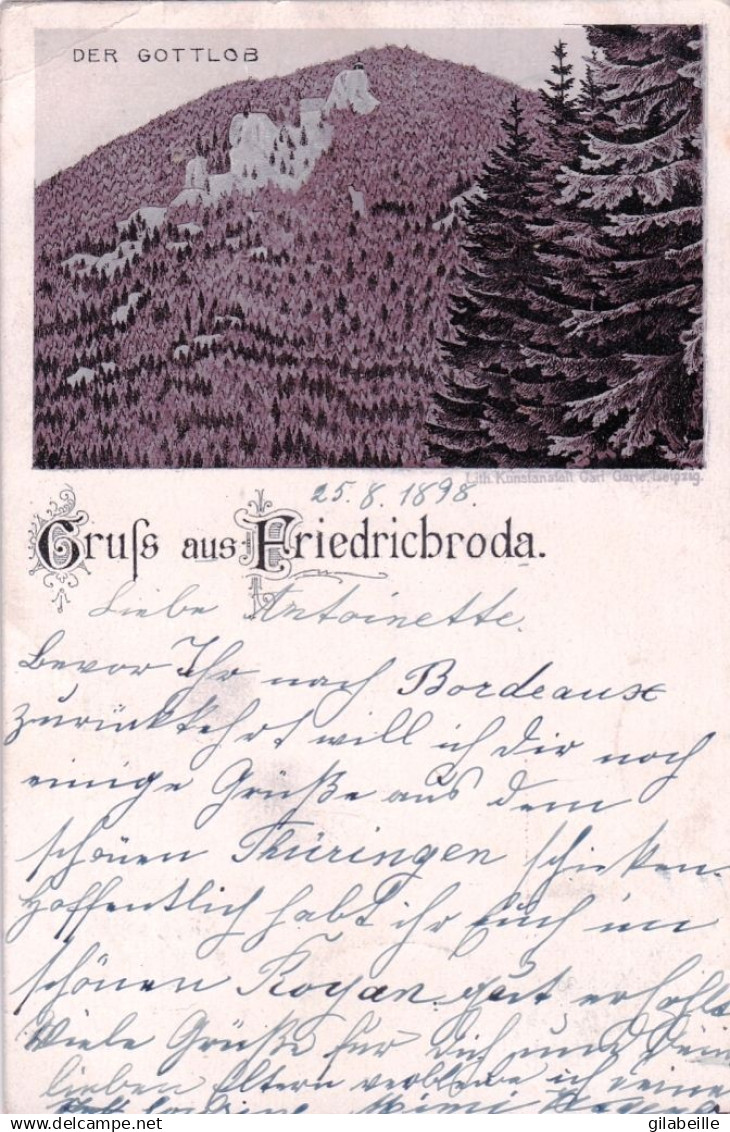 DER GOTTLOB
Lith. Kunstanstalt Carl Garte, Leipzig.
25. 8. 1898.
Gruſs aus Friedrichroda.
Liebe Antoinette.
Bevor Ihr nach Bordeaux
zurückkehrt will ich Dir noch
einige Grüße aus dem
schönen Thüringen schicken.
Hoffentlich habt ihr Euch im
schönen Royan gut erholt
Viele Grüße für dich und Deine
lieben Eltern verbleibe ich deine
Mimi
gilabeille